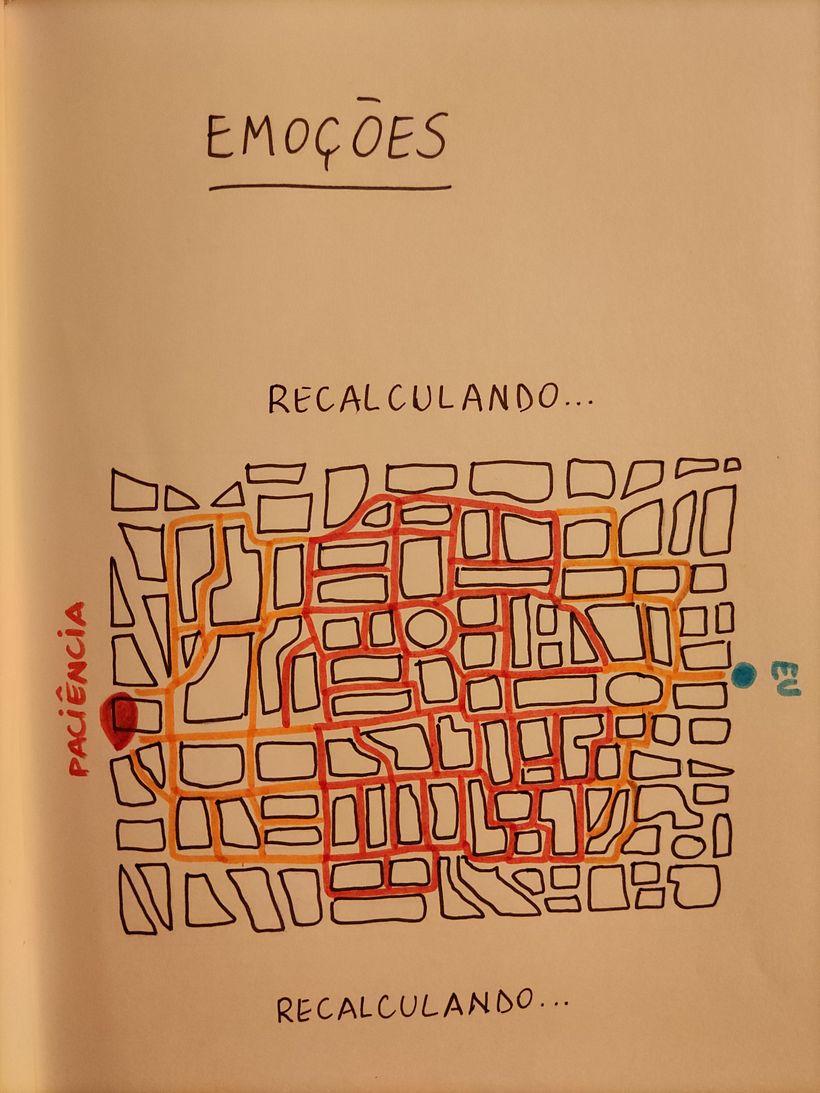 EMOÇÕES
RECALCULANDO...
PACIÊNCIA
EU
RECALCULANDO...